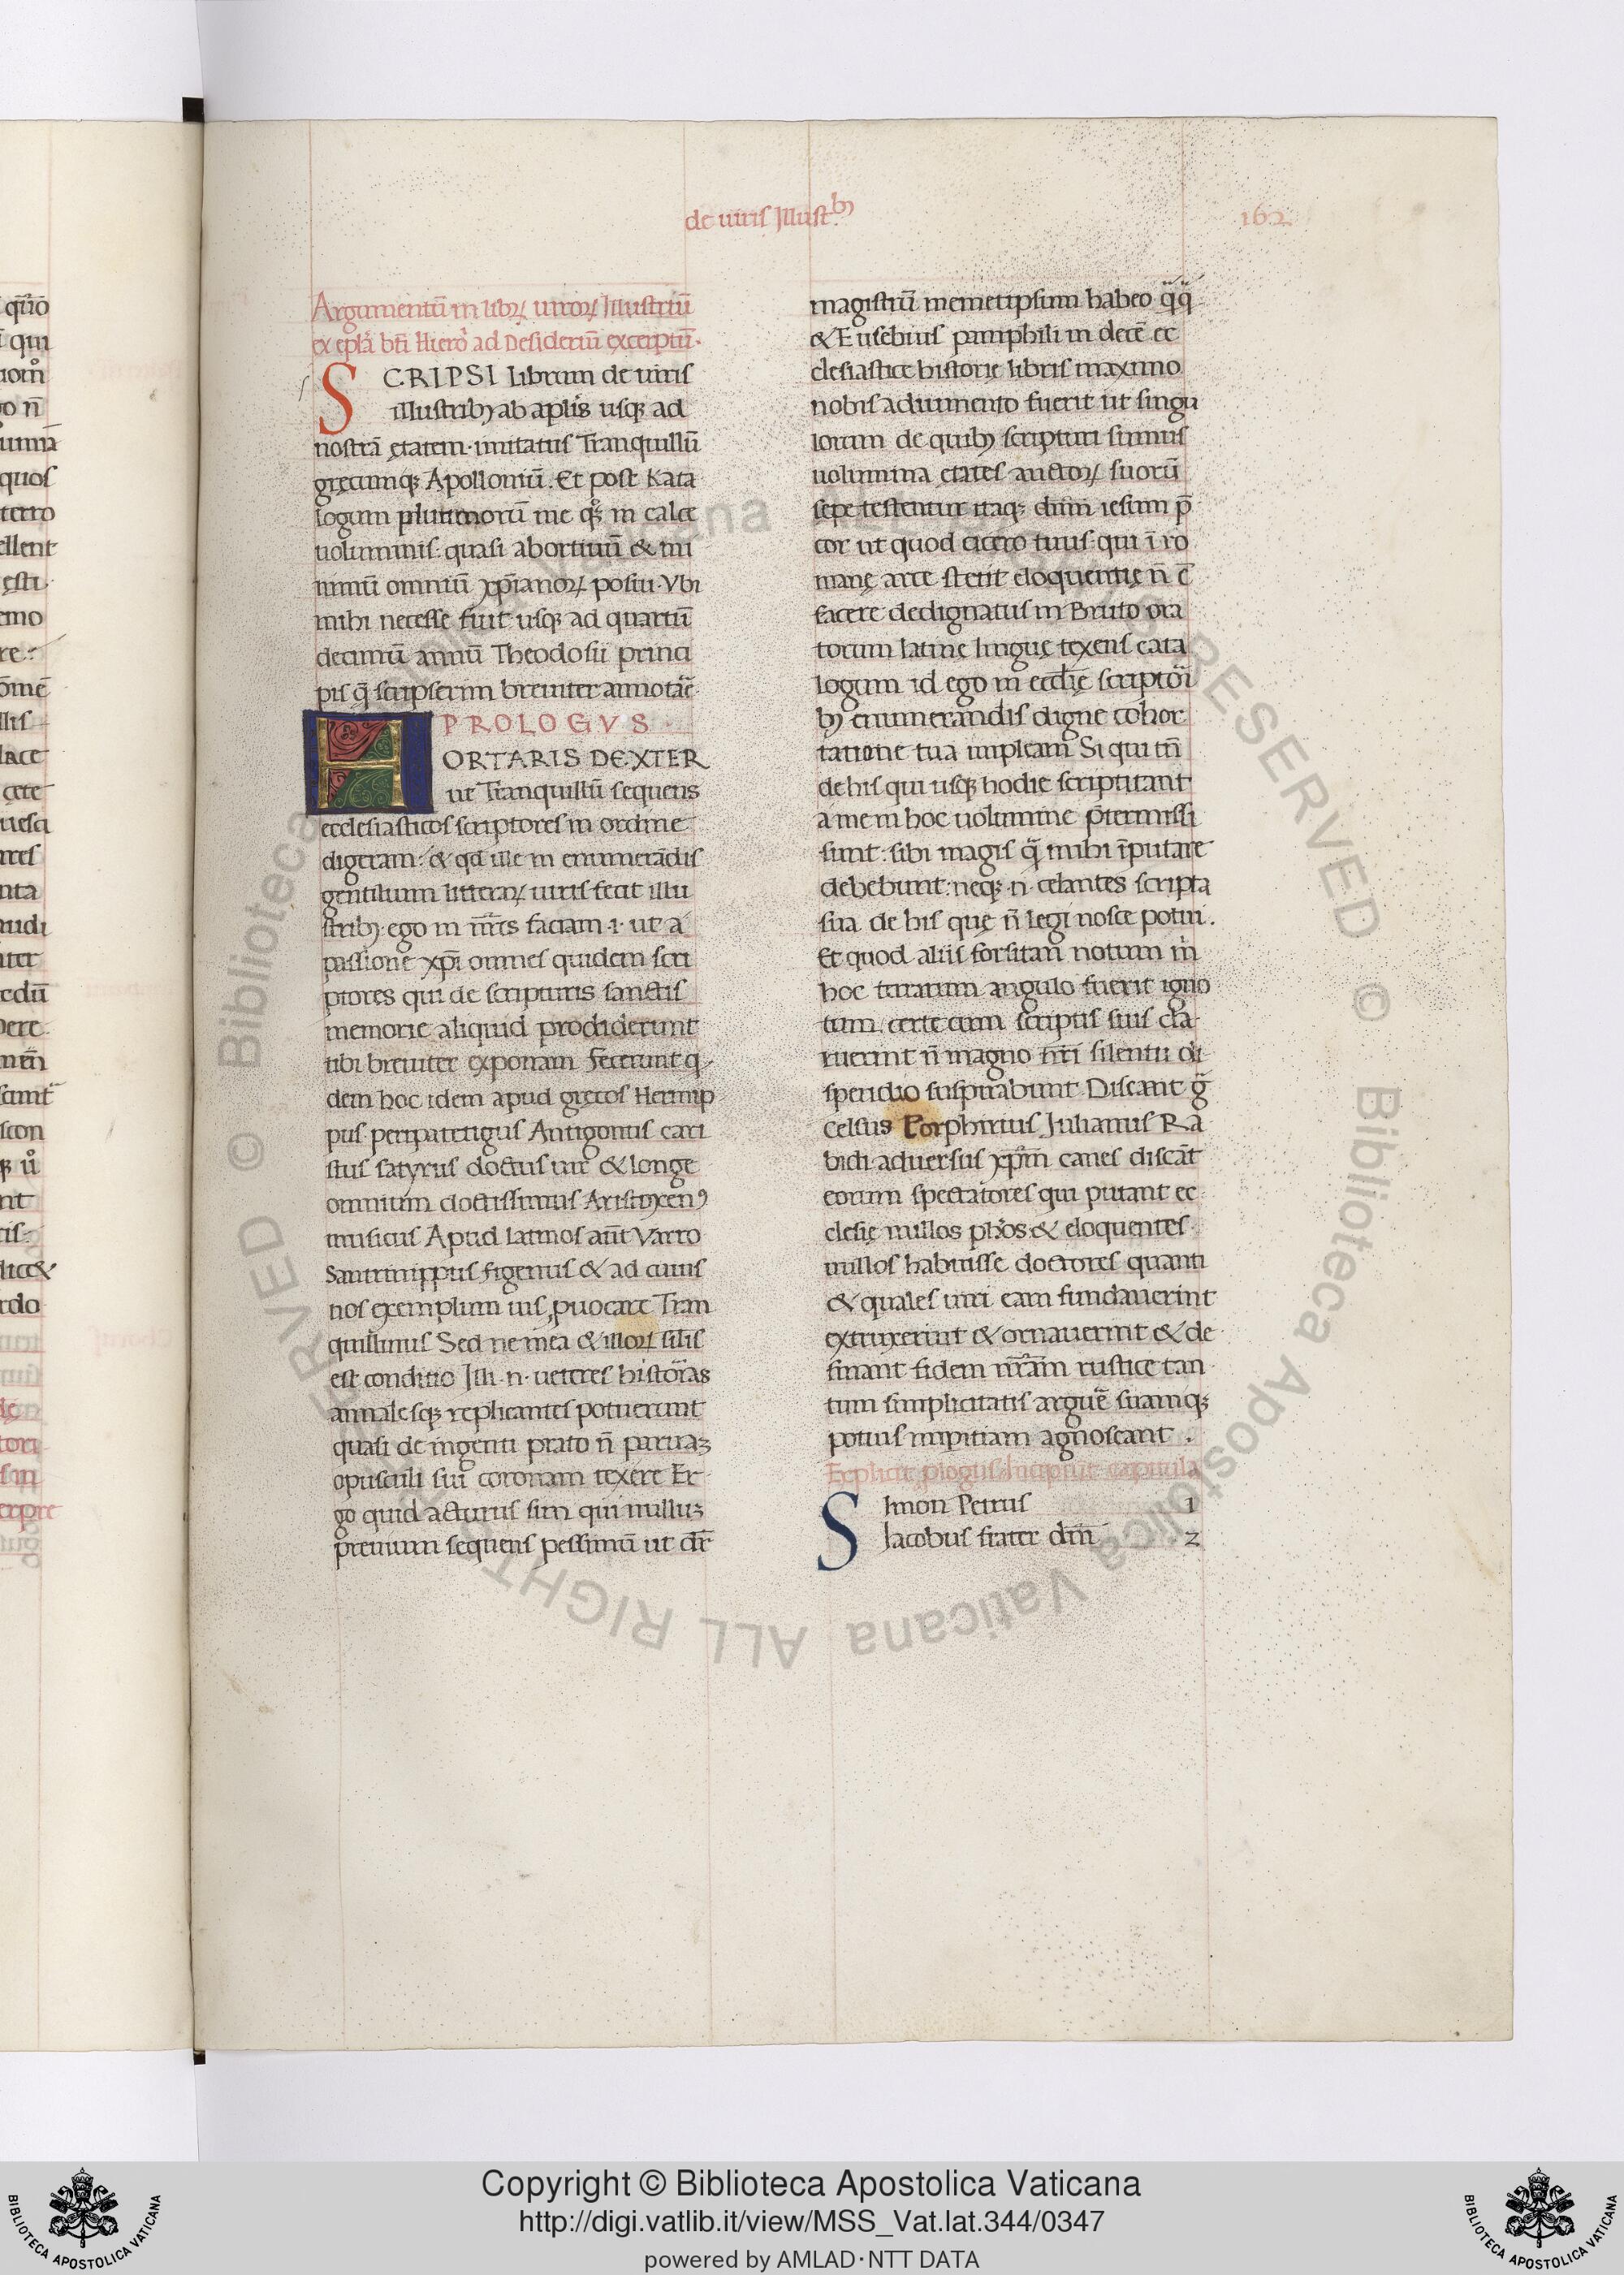 de uiris Illustꝫ
162
Argumentū in libꝝ uiroꝝ Illustriū
ex epl̄a bt̄i Hiero̓ ad Desideriū excerptū.
SCRIPSI librum de uiris
illustribꝫ ab apl̄is usqꝫ ad
nostrā ętatem. imitatus Tranquillū
gręcumqꝫ Apolloniū. Et post Kata
logum plurimorū me qͦꝫ in calce
uoluminis. quasi abortiuū & mi
nimū omniū xp̄ianoꝝ posui. Vbi
mihi necesse fuit usqꝫ ad quartū
decimū annū Theodosii princi
pis q̄ scripserim breuiter annotar̄e
PROLOGVS
HORTARIS DEXTER
ut Tranquillū sequens
ecclesiasticos scriptores in ordine
digeram. & qd̄ ille in enumerādis
gentilium litteraꝝ uiris fecit illu
stribꝫ. ego in nr̄is faciam .i. ut a
passione xp̄i omnes quidem scri
ptores qui de scripturis sanctis
memorie aliquid prodiderunt
tibi breuiter exponam Fecerunt q
dem hoc idem apud gręcos Hermip
pus peripatetigus Antigonus cari
stus satyrus doctus uir & longe
omnium doctissimus Aristoxenꝰ
musicus Apud Latinos aūt Varro
Santrinippus figenus & ad cuius
nos exemplum uis ꝓuocare Tran
quillinus Sed ne mea & illoꝝ silis
est conditio Illi .n. ueteres histor̄as
annalesqꝫ replicantes potuerunt
quasi de ingenti prato n̄ paruaꝫ
opusculi sui coronam texere Er
go quid acturus sim qui nulluꝫ
preuium sequens pessimū ut dr̄
magistrū memetipsum habeo q̄q̄
& Eusebius pamphili in decē ec
clesiastice historię libris maximo
nobis adiumento fuerit ut singu
lorum de quibꝫ scripturi sumus
uolumina etates auctoꝝ suorū
sepe testentur itaqꝫ dn̄m iesum p̄
cor ut quod cicero tuus. qui ī ro
manę arce stetit eloquentię n̄ ē
facere dedignatus in Bruto ora
torum latine linguę texens cata
logum id ego in eccl̄ię scriptor̄i
bꝫ enumerandis digne cohor
tatione tua impleam Si qui tn̄
de his qui usqꝫ hodie scriptitant
a me in hoc uolumine p̄termissi
sunt. sibi magis q̄ mihi īputare
debebunt. neqꝫ .n. celantes scripta
sua de his quę n̄ legi nosce potui.
Et quod aliis forsitan notum m̄
hoc terrarum angulo fuerit igno
tum. certe cum scriptis suis cla
ruerint n̄ magno nr̄i silentii di
spendio suspirabunt Discant g̊
Celsus Porphirius Julianus Ra
bidi aduersus xp̄m canes discāt
eorum spectatores qui putant ec
clesię nullos ph̄os & eloquentes
nullos habuisse doctores quanti
& quales uiri eam fundauerint
extruxerint & ornauerint & de
sinant fidem nr̄am rusticę tan
tum simplicitatis arguē suamqꝫ
potius impitiam agnoscant.
Explicit ꝓlogus Incipiūt capitula
SImon Petrus 1
Iacobus frater dn̄i 2
Copyright © Biblioteca Apostolica Vaticana
http://digi.vatlib.it/view/MSS_Vat.lat.344/0347
powered by AMLAD·NTT DATA